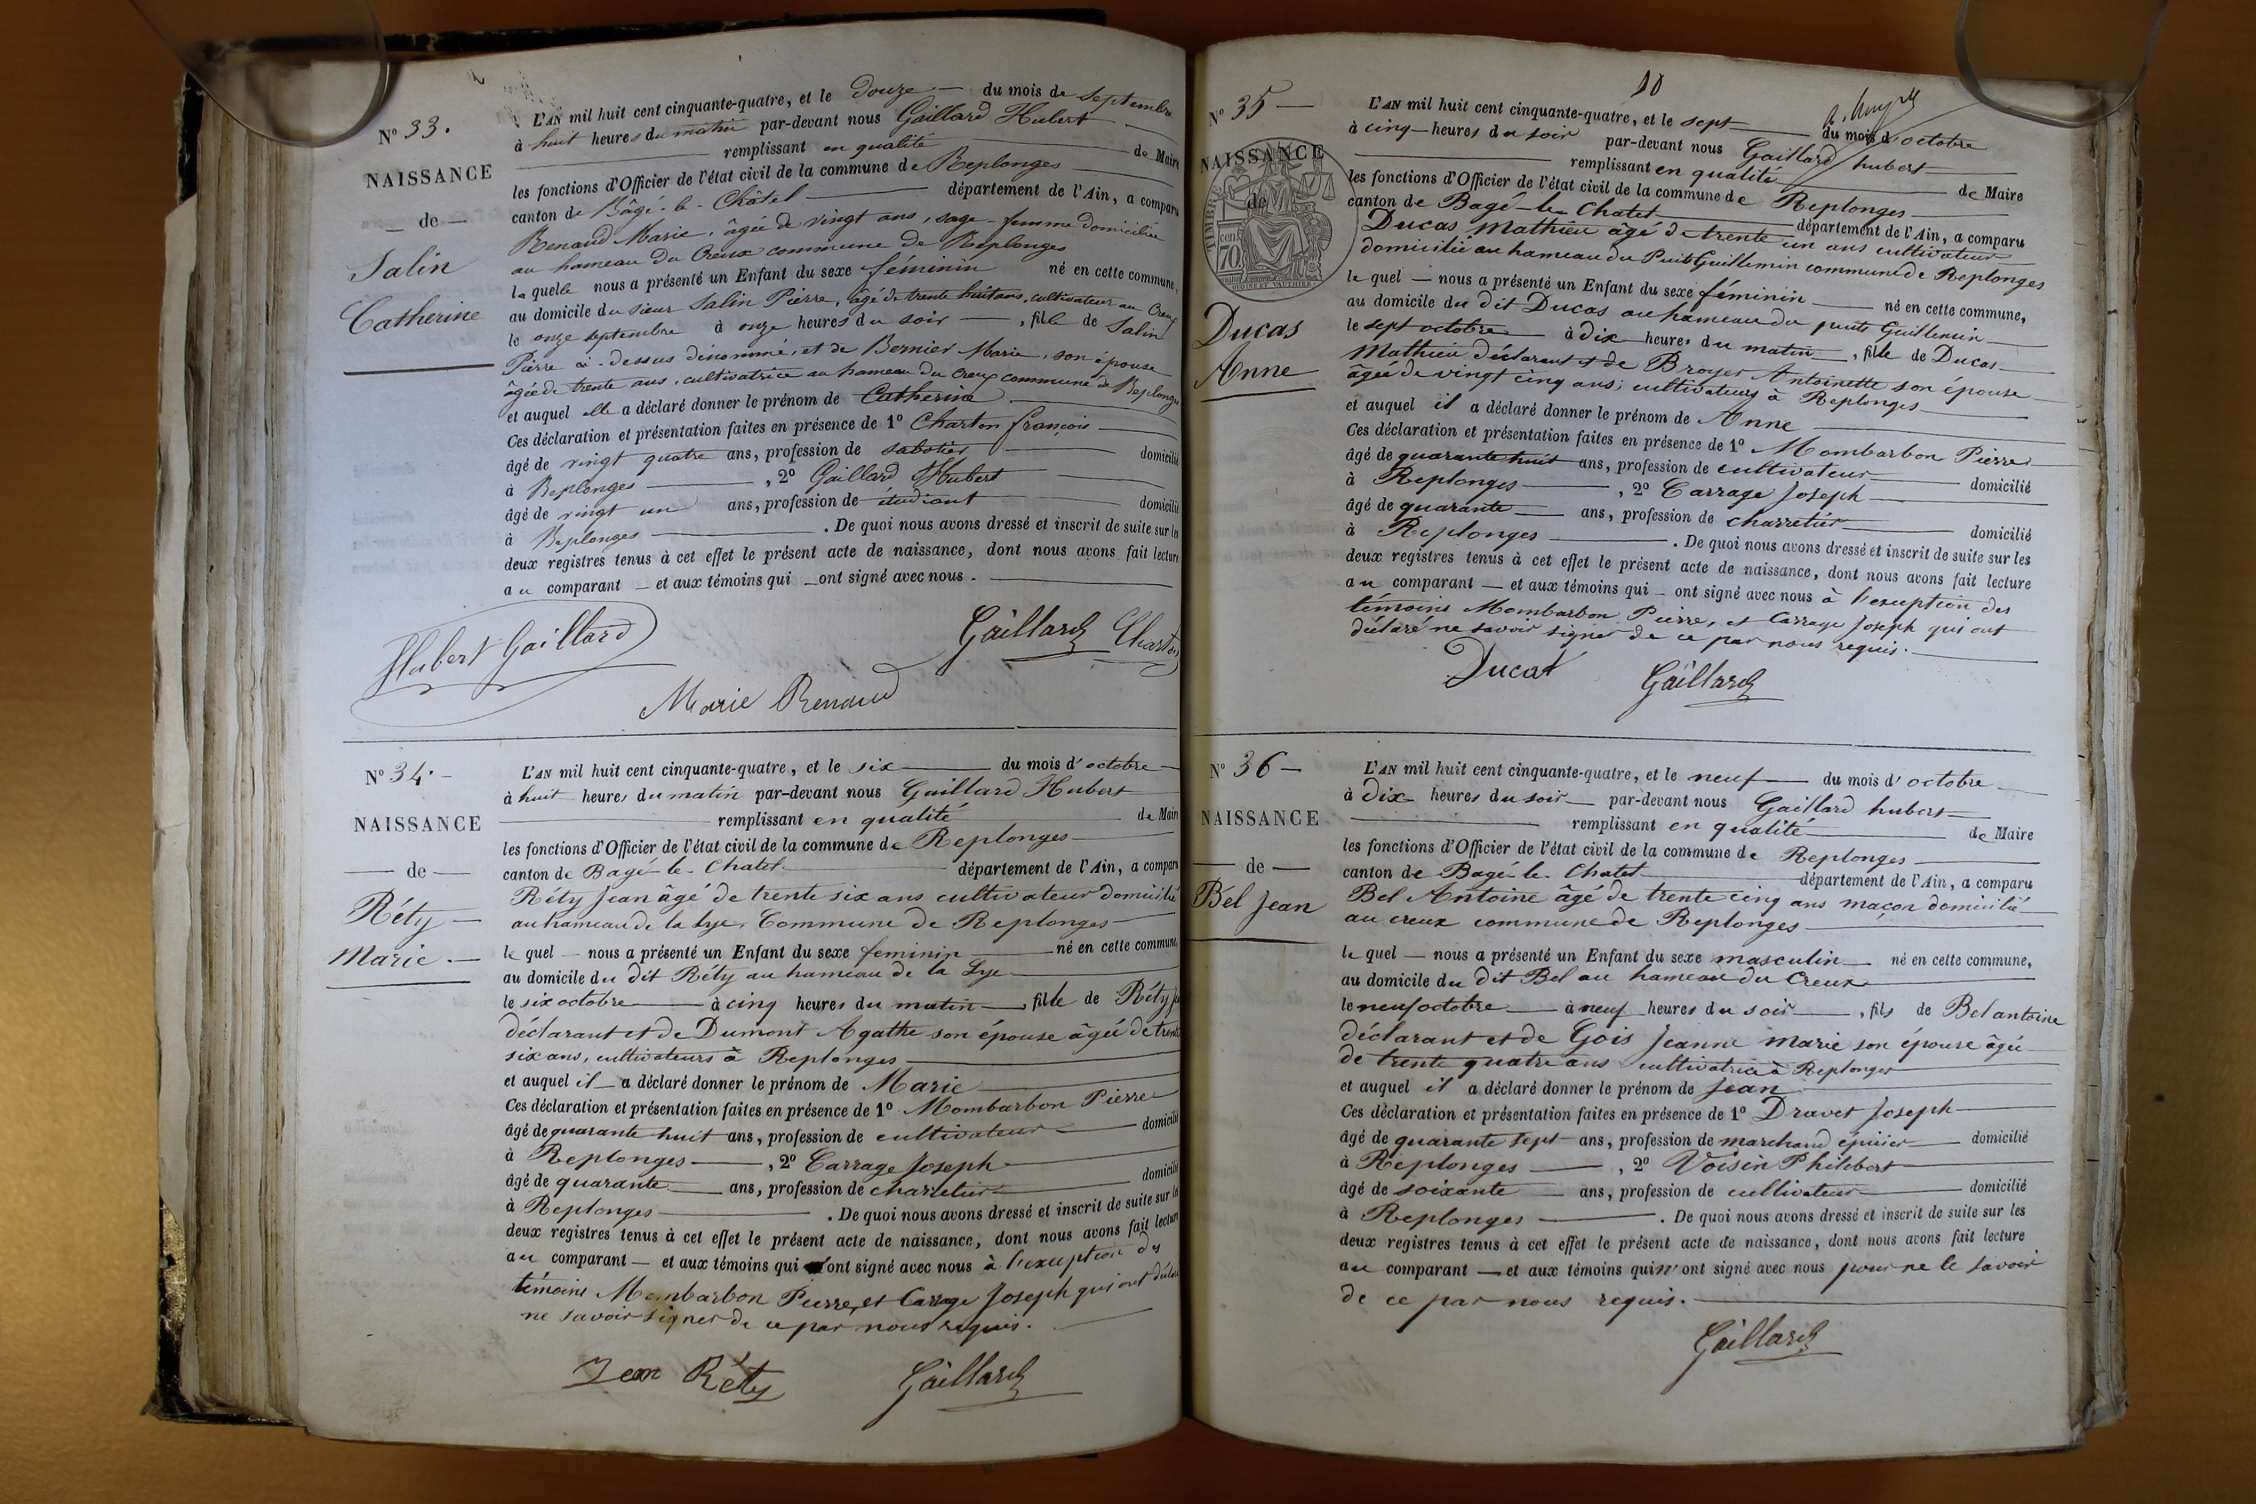 N° 33.
NAISSANCE
de
Salin
Catherine
L'AN mil huit cent cinquante-quatre, et le douze du mois de septembre
à huit heures du matin par-devant nous Gaillard Hubert
remplissant en qualité de Maire
les fonctions d'Officier de l'état civil de la commune de Replonges
canton de Bâgé-le-Châtel département de l'Ain, a comparu
Renaud Marie, âgée de vingt ans, sage-femme domiciliée
au hameau du Creux commune de Replonges
laquelle nous a présenté un Enfant du sexe féminin né en cette commune,
au domicile du sieur Salin Pierre, âgé de trente huit ans, cultivateur au Creux
le onze septembre à onze heures du soir, fille de Salin
Pierre ci-dessus dénommé, et de Bernier Marie, son épouse
âgée de trente ans, cultivatrice au hameau du Creux commune de Replonges
et auquel elle a déclaré donner le prénom de Catherine
Ces déclaration et présentation faites en présence de 1° Charton françois
âgé de vingt quatre ans, profession de sabotier domicilié
à Replonges, 2° Gaillard Hubert
âgé de vingt un ans, profession de étudiant domicilié
à Replonges. De quoi nous avons dressé et inscrit de suite sur les
deux registres tenus à cet effet le présent acte de naissance, dont nous avons fait lecture
au comparant et aux témoins qui ont signé avec nous.
Hubert Gaillard
Gaillard
Charton
Marie Renaud
N° 34.
NAISSANCE
de
Réty
Marie.
L'AN mil huit cent cinquante-quatre, et le six du mois d'octobre
à huit heures du matin par-devant nous Gaillard Hubert
remplissant en qualité de Maire
les fonctions d'Officier de l'état civil de la commune de Replonges
canton de Bagé-le-Chatel département de l'Ain, a comparu
Réty Jean âgé de trente six ans cultivateur domicilié
au hameau de la Lye, Commune de Replonges
lequel nous a présenté un Enfant du sexe feminin né en cette commune,
au domicile du dit Réty au hameau de la Lye
le six octobre à cinq heures du matin, fille de Réty
déclarant et de Dumont Agathe son épouse âgée de trente
six ans, cultivateurs à Replonges
et auquel il a déclaré donner le prénom de Marie
Ces déclaration et présentation faites en présence de 1° Mombarbon Pierre
âgé de quarante huit ans, profession de cultivateur domicilié
à Replonges, 2° Carrage Joseph
âgé de quarante ans, profession de charretier domicilié
à Replonges. De quoi nous avons dressé et inscrit de suite sur les
deux registres tenus à cet effet le présent acte de naissance, dont nous avons fait lecture
au comparant et aux témoins qui ont signé avec nous à l'exception des
témoins Mombarbon Pierre, et Carrage Joseph qui ont déclaré
ne savoir signer de ce par nous requis.
Jean Réty
Gaillard
10
N° 35
NAISSANCE
de
Ducas
Anne
TIMBRE
70
L'AN mil huit cent cinquante-quatre, et le sept du mois d'octobre
à cinq heures du soir par-devant nous Gaillard hubert
remplissant en qualité de Maire
les fonctions d'Officier de l'état civil de la commune de Replonges
canton de Bagé-le-Chatel département de l'Ain, a comparu
Ducas Mathieu âgé de trente un ans cultivateur
domicilié au hameau du Puits Guillemin commune de Replonges
lequel nous a présenté un Enfant du sexe féminin né en cette commune,
au domicile du dit Ducas au hameau du puits Guillemin
le sept octobre à dix heures du matin, fille de Ducas
Mathieu déclarant et de Broyer Antoinette son épouse
âgée de vingt cinq ans, cultivateurs à Replonges
et auquel il a déclaré donner le prénom de Anne
Ces déclaration et présentation faites en présence de 1° Mombarbon Pierre
âgé de quarante huit ans, profession de cultivateur domicilié
à Replonges, 2° Carrage Joseph
âgé de quarante ans, profession de charretier domicilié
à Replonges. De quoi nous avons dressé et inscrit de suite sur les
deux registres tenus à cet effet le présent acte de naissance, dont nous avons fait lecture
au comparant et aux témoins qui ont signé avec nous à l'exception des
témoins Mombarbon Pierre, et Carrage Joseph qui ont
déclaré ne savoir signer de ce par nous requis.
Ducas
Gaillard
N° 36
NAISSANCE
de
Bel Jean
L'AN mil huit cent cinquante-quatre, et le neuf du mois d'octobre
à Dix heures du soir par-devant nous Gaillard hubert
remplissant en qualité de Maire
les fonctions d'Officier de l'état civil de la commune de Replonges
canton de Bagé-le-Chatel département de l'Ain, a comparu
Bel Antoine âgé de trente cinq ans maçon domicilié
au creux commune de Replonges
lequel nous a présenté un Enfant du sexe masculin né en cette commune,
au domicile du dit Bel au hameau du Creux
le neuf octobre à neuf heures du soir, fils de Bel antoine
déclarant et de Gois Jeanne Marie son épouse âgée
de trente quatre ans cultivatrice à Replonges
et auquel il a déclaré donner le prénom de Jean
Ces déclaration et présentation faites en présence de 1° Dravet Joseph
âgé de quarante sept ans, profession de marchand épicier domicilié
à Replonges, 2° Voisin Philibert
âgé de soixante ans, profession de cultivateur domicilié
à Replonges. De quoi nous avons dressé et inscrit de suite sur les
deux registres tenus à cet effet le présent acte de naissance, dont nous avons fait lecture
au comparant et aux témoins qui n'ont signé avec nous pour ne le savoir
de ce par nous requis.
Gaillard